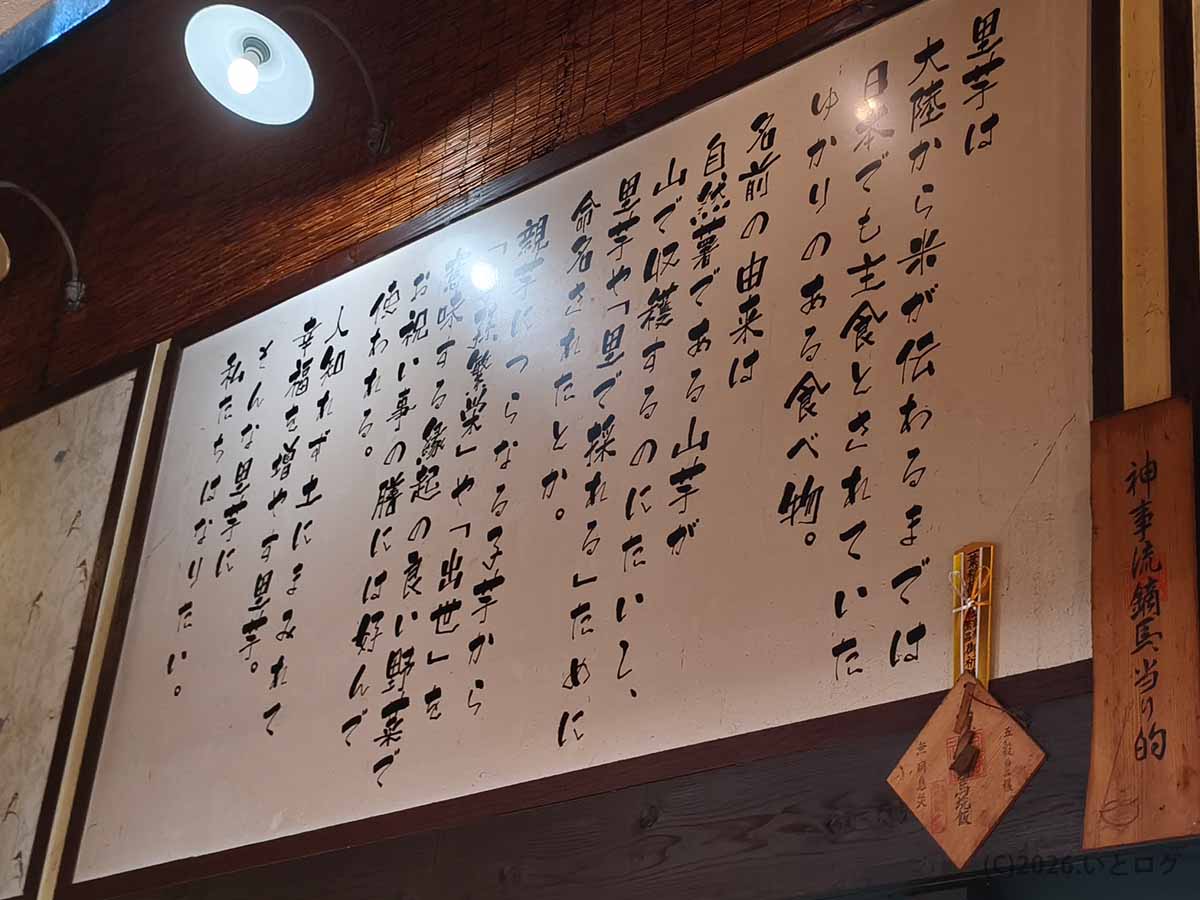 里芋は
大陸から米が伝わるまでは
日本でも主食とされていた
ゆかりのある食べ物。
名前の由来は
自然薯である山芋が
山で収穫するのにたいして、
里芋や「里で採れる」ために
命名されたとか。
親芋につらなる子芋から
「子孫繁栄」や「出世」を
意味する縁起の良い野菜で
お祝い事の膳には好んで
使われる。
人知れず土にまみれて
幸福を増やす里芋。
そんな里芋に
私たちはなりたい。
神事流鏑馬当り的
五穀豊穣
無病息災
(C)2026.いとログ